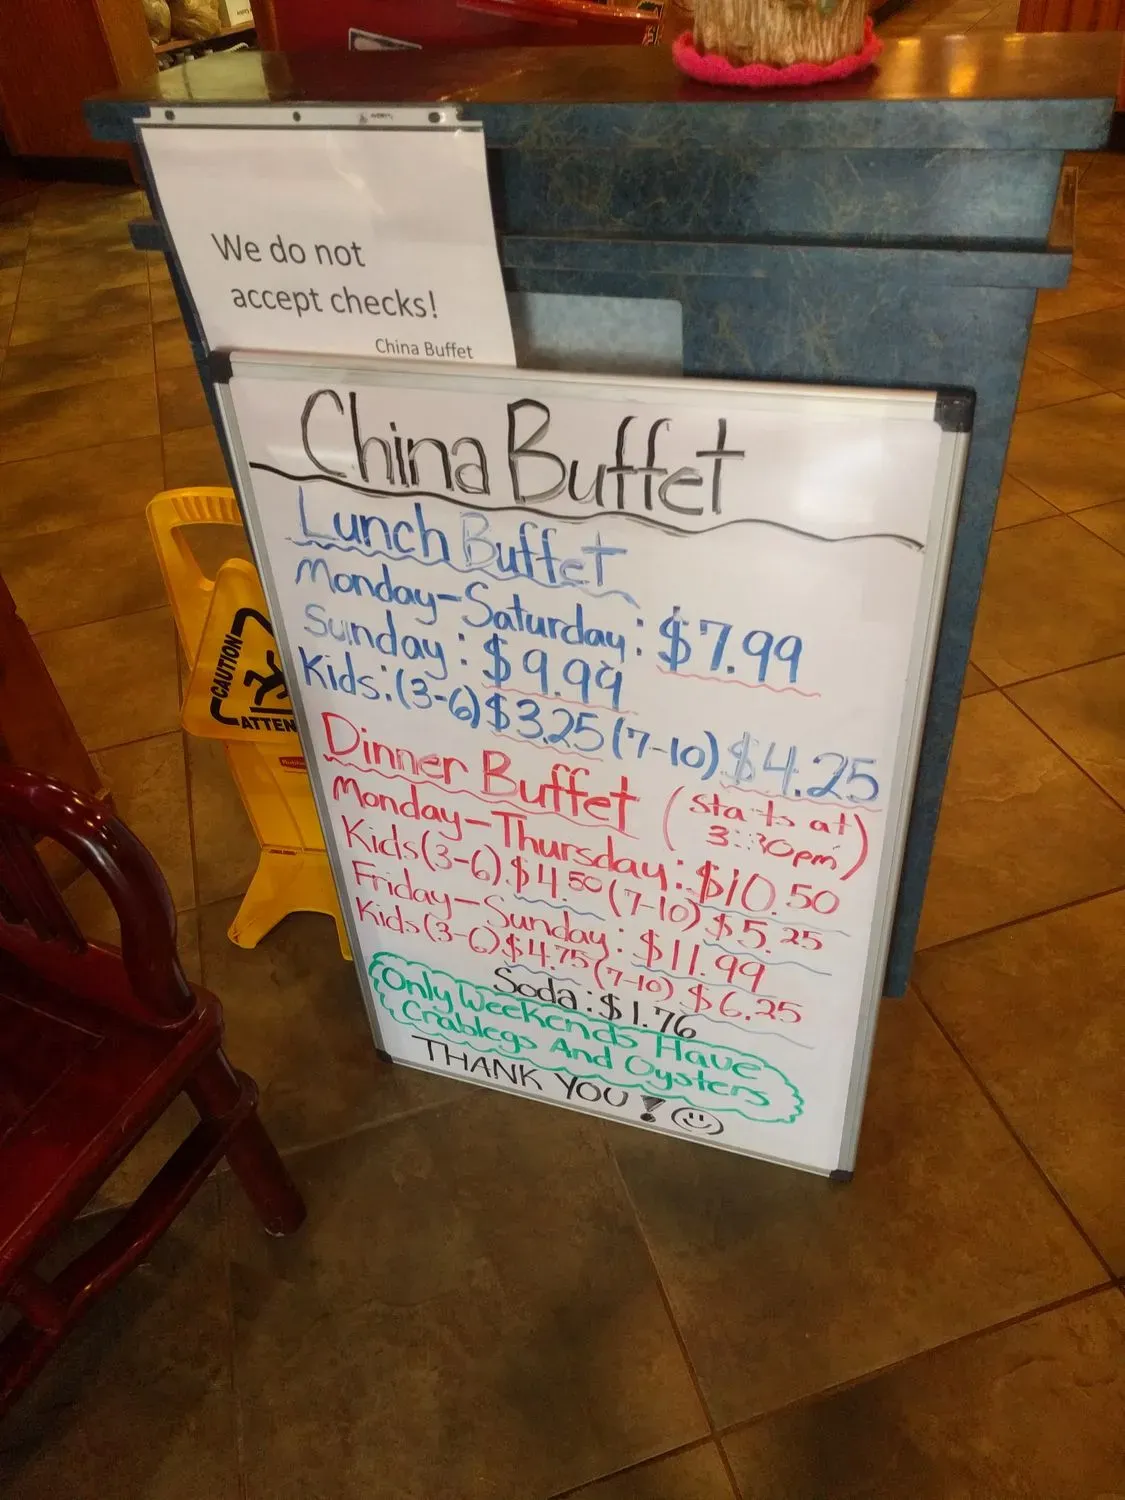 We do not
accept checks!
China Buffet
China Buffet
Lunch Buffet
Monday-Saturday: $7.99
Sunday: $9.99
Kids: (3-6) $3.25 (7-10) $4.25
Dinner Buffet (starts at 3:30pm)
Monday-Thursday: $10.50
Kids (3-6) $4.50 (7-10) $5.25
Friday-Sunday: $11.99
Kids (3-6) $4.75 (7-10) $6.25
Soda: $1.76
Only Weekends Have
Crablegs And Oysters
THANK YOU!
CAUTION
ATTEN